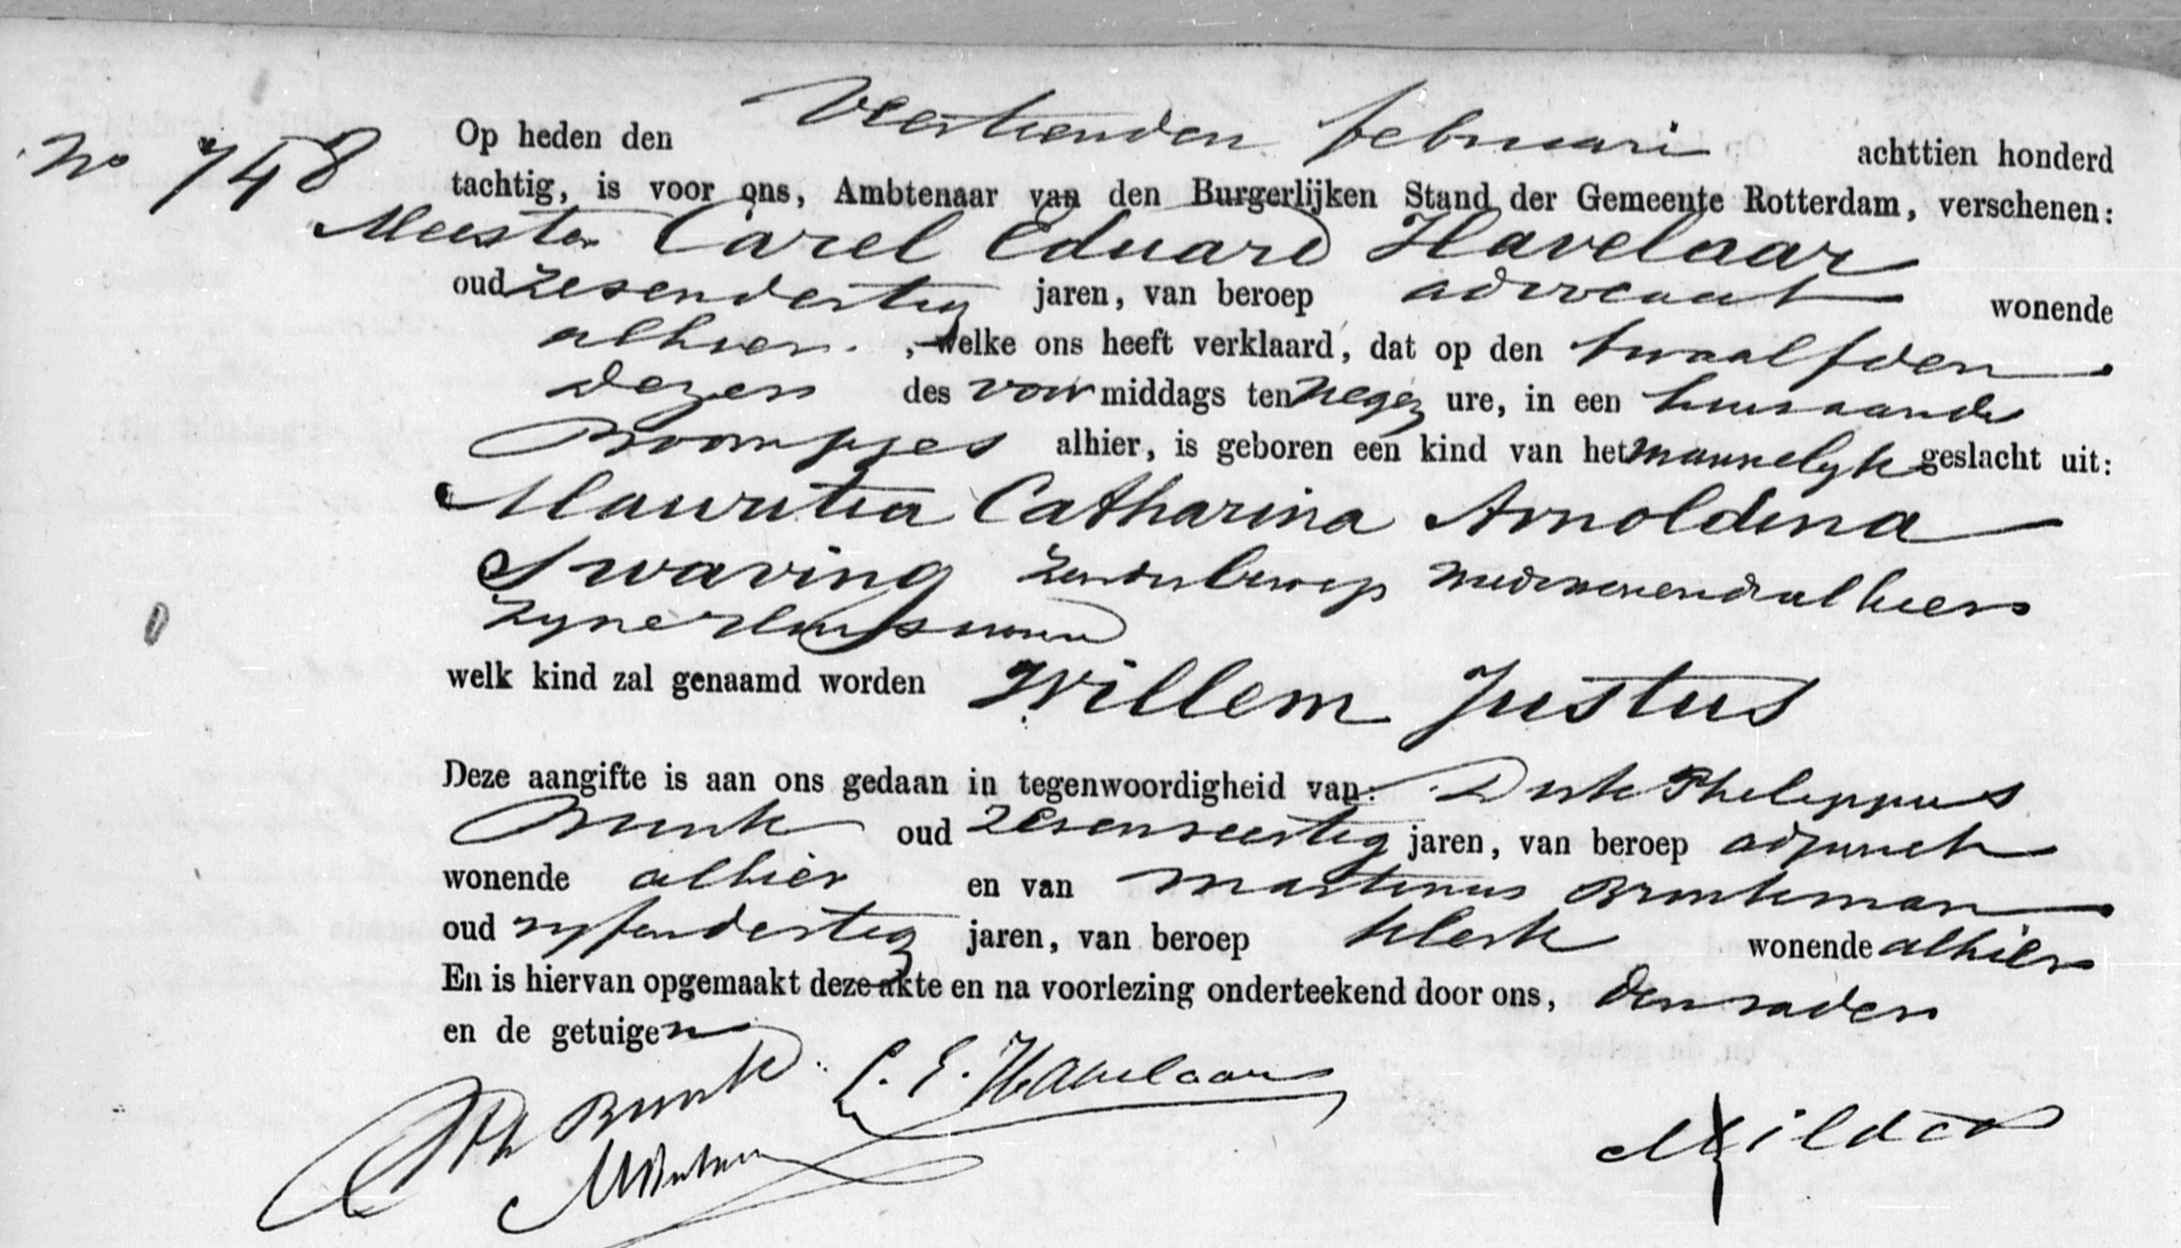 No 748
Op heden den Veertienden februari achttien honderd
tachtig, is voor ons, Ambtenaar van den Burgerlijken Stand der Gemeente Rotterdam, verschenen:
Meester Carel Eduard Havelaar
oud zesendertig jaren, van beroep advocaat wonende
alhier. , welke ons heeft verklaard, dat op den twaalfden
dezer des voor middags ten negen ure, in een huis aan de
Boompjes alhier, is geboren een kind van het mannelijk geslacht uit:
Mauritia Catharina Arnoldina
Swaving zonder beroep mede wonende alhier
zijne echtgenoote
welk kind zal genaamd worden Willem Justus
Deze aangifte is aan ons gedaan in tegenwoordigheid van: Dirk Philippus
oud zesenveertig jaren, van beroep adjunct
wonende alhier en van Martinus Brinkman
oud vijfendertig jaren, van beroep klerk wonende alhier
En is hiervan opgemaakt deze akte en na voorlezing onderteekend door ons, den vader
en de getuigen
C. E. Havelaar